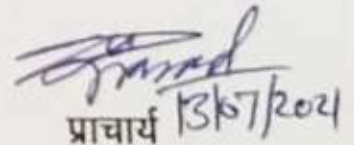 प्राचार्य 13/07/2021